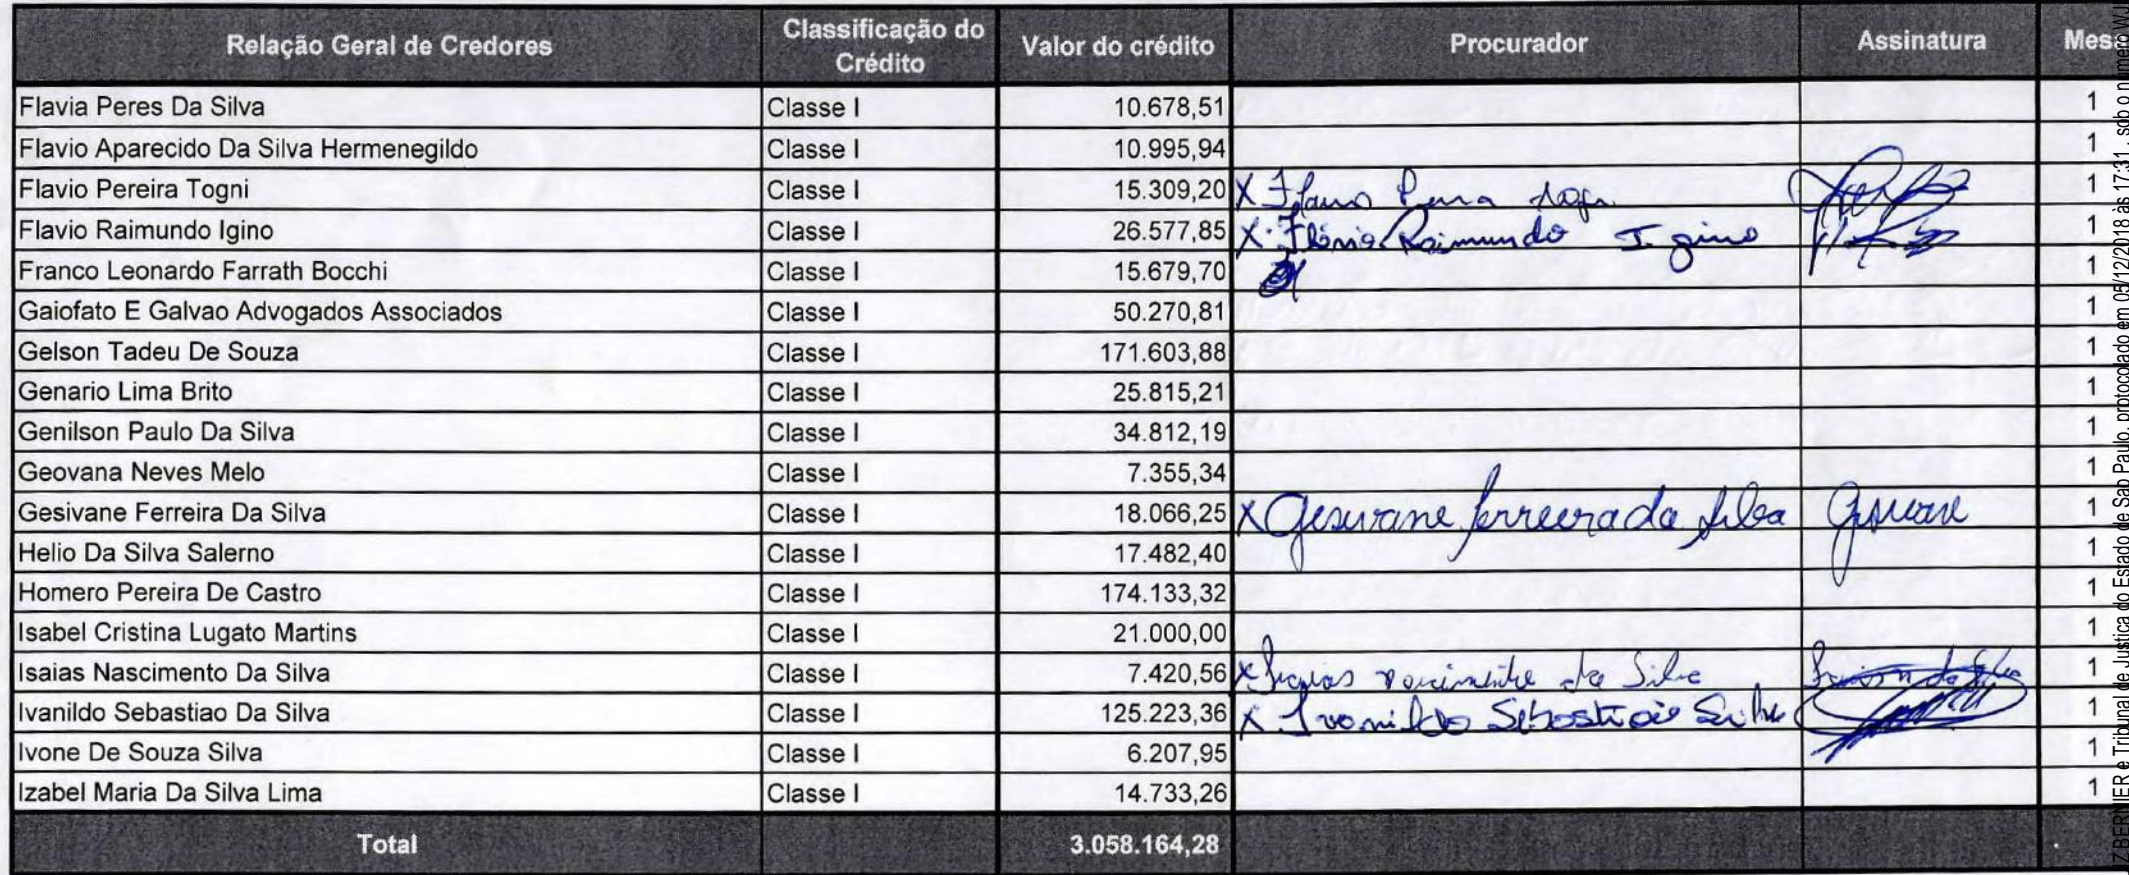 Relação Geral de Credores Classificação do Crédito Valor do crédito Procurador Assinatura Mesa
Flavia Peres Da Silva Classe I 10.678,51 1
Flavio Aparecido Da Silva Hermenegildo Classe I 10.995,94 1
Flavio Pereira Togni Classe I 15.309,20 X 1
Flavio Raimundo Igino Classe I 26.577,85 X Flávio Raimundo Igino 1
Franco Leonardo Farrath Bocchi Classe I 15.679,70 1
Gaiofato E Galvao Advogados Associados Classe I 50.270,81 1
Gelson Tadeu De Souza Classe I 171.603,88 1
Genario Lima Brito Classe I 25.815,21 1
Genilson Paulo Da Silva Classe I 34.812,19 1
Geovana Neves Melo Classe I 7.355,34 1
Gesivane Ferreira Da Silva Classe I 18.066,25 X Gesivane ferreira da silva 1
Helio Da Silva Salerno Classe I 17.482,40 1
Homero Pereira De Castro Classe I 174.133,32 1
Isabel Cristina Lugato Martins Classe I 21.000,00 1
Isaias Nascimento Da Silva Classe I 7.420,56 X Isaias nascimento da Silva 1
Ivanildo Sebastiao Da Silva Classe I 125.223,36 X Ivanildo Sebastião Silva 1
Ivone De Souza Silva Classe I 6.207,95 1
Izabel Maria Da Silva Lima Classe I 14.733,26 1
Total 3.058.164,28
BERNIER e Tribunal de Justica do Estado de Sao Paulo, protocolado em 05/12/2018 às 17:31 , sob o numero